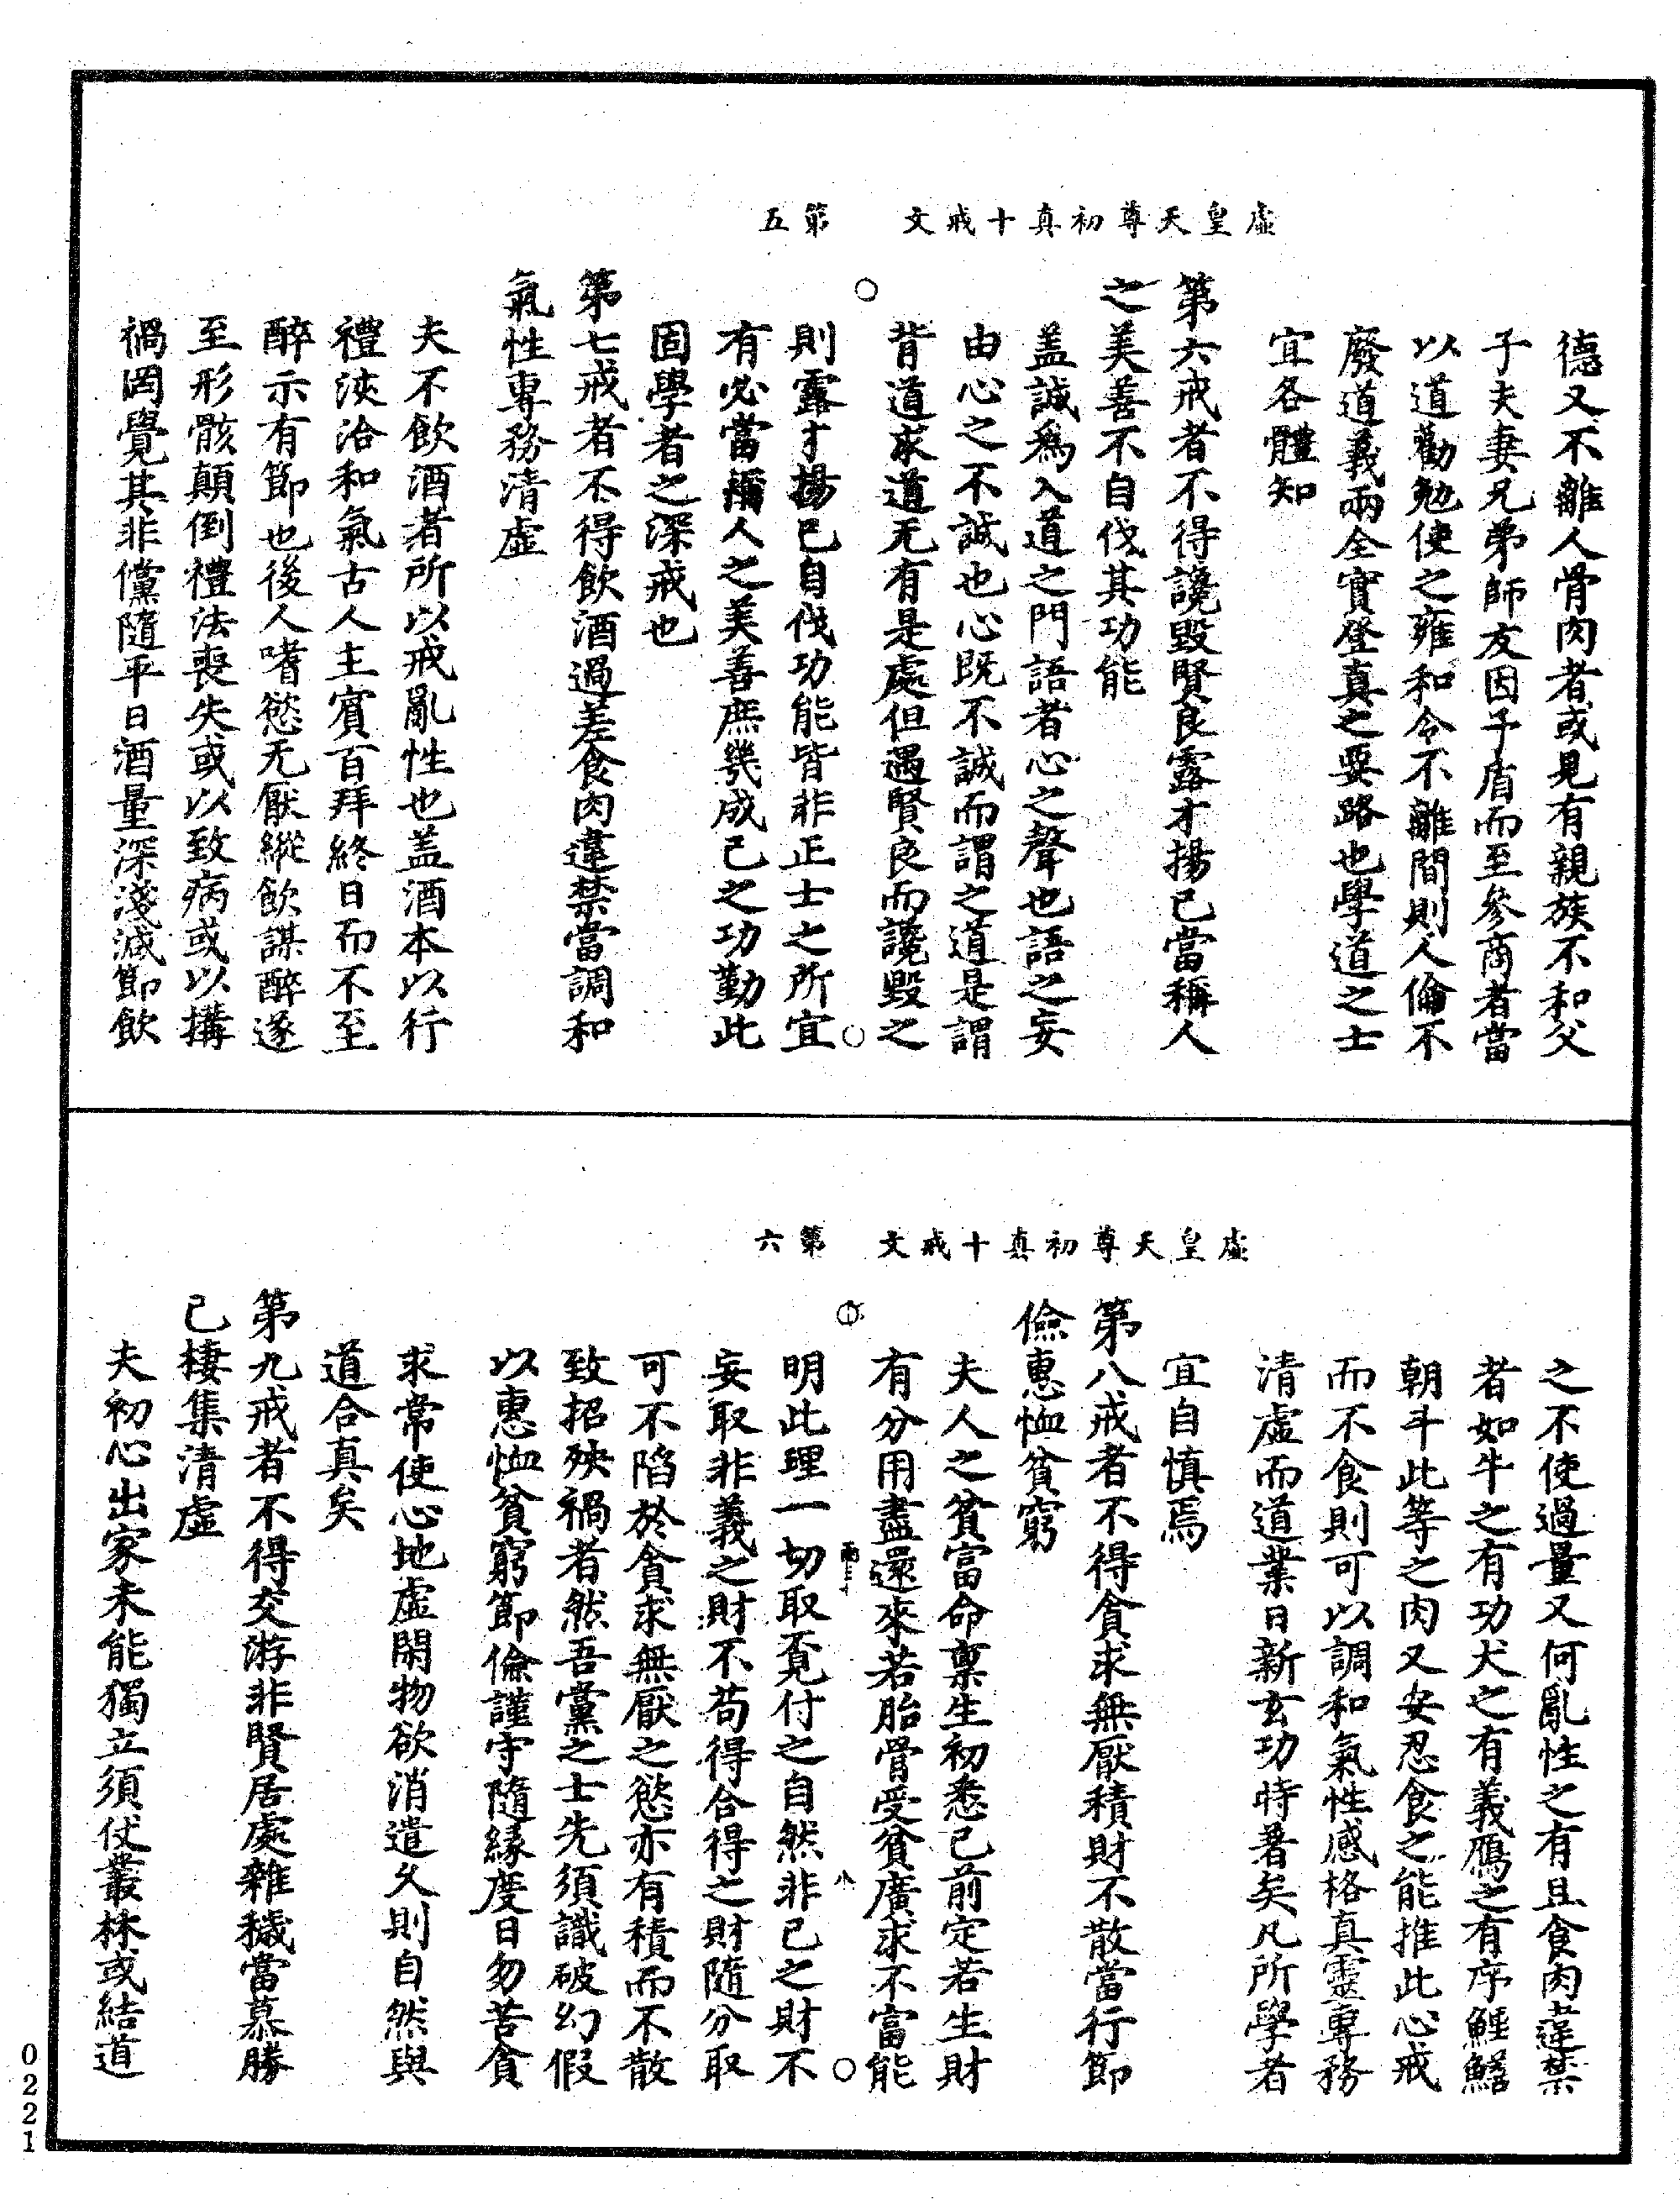 虛皇天尊初真十戒文　第五
德又不離人骨肉者或見有親族不和父
子夫妻兄弟師友因予盾而至參商者當
以道勸勉使之雍和令不離間則人倫不
廢道義兩全實登真之要路也學道之士
宜各體知
第六戒者不得讒毀賢良露才揚己當稱人
之美善不自伐其功能
盖誠爲入道之門語者心之聲也語之妄
由心之不誠也心既不誠而謂之道是謂
背道求道无有是處但遇賢良而讒毀之
則露才揚己自伐功能皆非正士之所宜
有必當稱人之美善庶幾成己之功勤此
固學者之深戒也
第七戒者不得飲酒過差食肉違禁當調和
氣性專務清虛
夫不飲酒者所以戒亂性也盖酒本以行
禮浹洽和氣古人主賓百拜終日而不至
醉示有節也後人嗜慾无厭縱飲謀醉遂
至形骸顛倒禮法喪失或以致病或以搆
禍罔覺其非儻隨平日酒量深淺減節飲
虛皇天尊初真十戒文　第六
之不使過量又何亂性之有且食肉違禁
者如牛之有功犬之有義鴈之有序鯉鱔
朝斗此等之肉又安忍食之能推此心戒
而不食則可以調和氣性感格真靈專務
清虛而道業日新玄功時著矣凡所學者
宜自慎焉
第八戒者不得貪求無厭積財不散當行節
儉惠恤貧窮
夫人之貧富命禀生初悉已前定若生財
有分用盡還來若胎骨受貧廣求不富能
明此理一切取覔付之自然非己之財不
妄取非義之財不苟得合得之財隨分取
可不陷於貪求無厭之慾亦有積而不散
致招殃禍者然吾黨之士先須識破幻假
以惠恤貧窮節儉謹守隨緣度日勿苦貪
求常使心地虛閑物欲消遣久則自然與
道合真矣
第九戒者不得交游非賢居處雜穢當慕勝
己棲集清虛
夫初心出家未能獨立須仗叢林或結道
0221